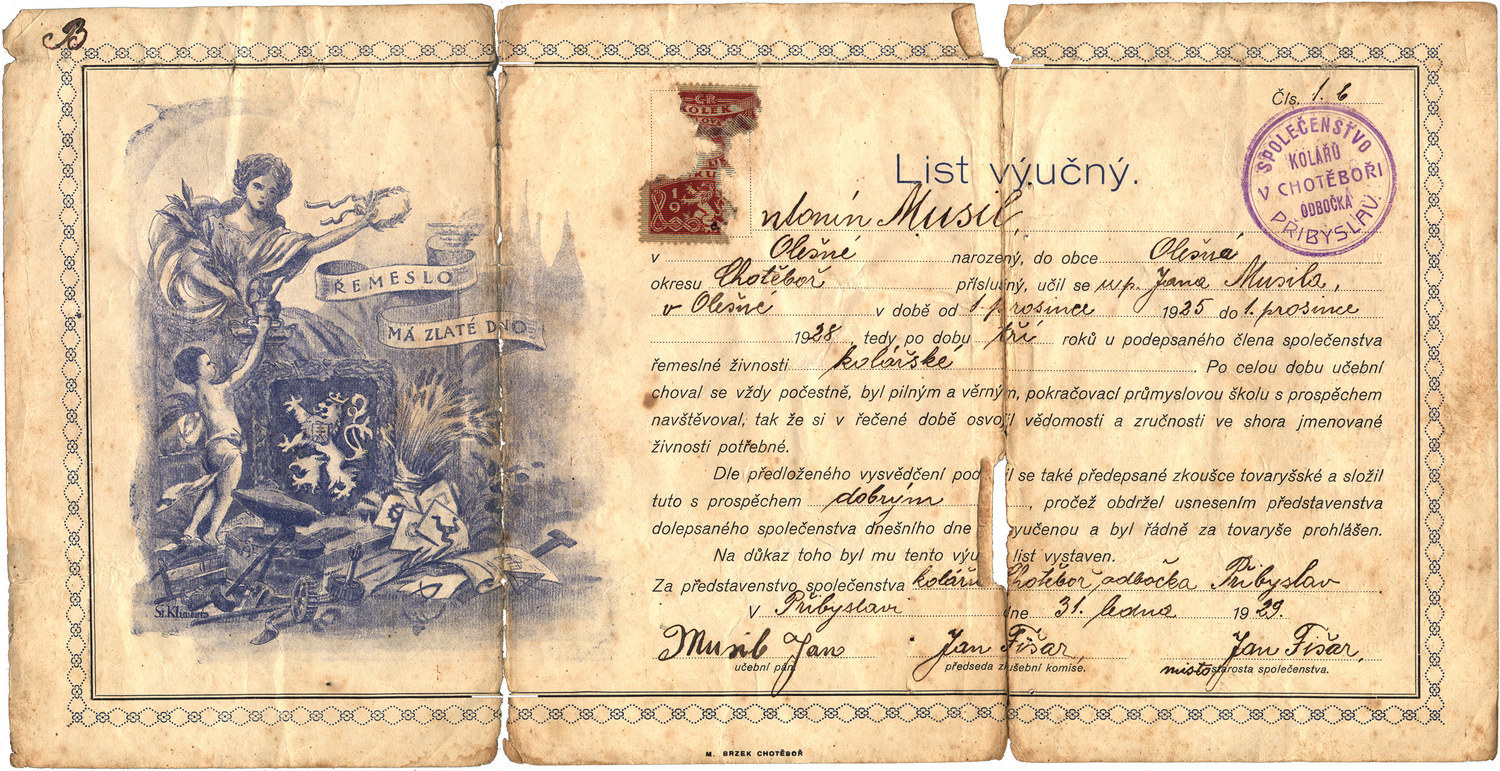 B
ŘEMESLO
MÁ ZLATÉ DNO
St. Klíma
ČR
KOLEK
19
Čís. 1. 6
SPOLEČENSTVO
KOLÁŘŮ
V CHOTĚBOŘI
ODBOČKA
PŘIBYSLAV.
List výučný.
ntonín Musil,
v Olešné narozený, do obce Olešná
okresu Chotěboř příslušný, učil se u p. Jana Musila,
v Olešné v době od 1. prosince 1925 do 1. prosince
1928, tedy po dobu tří roků u podepsaného člena společenstva
řemeslné živnosti kolářské. Po celou dobu učební
choval se vždy počestně, byl pilným a věrným, pokračovací průmyslovou školu s prospěchem
navštěvoval, tak že si v řečené době osvojil vědomosti a zručnosti ve shora jmenované
živnosti potřebné.
Dle předloženého vysvědčení pod il se také předepsané zkoušce tovaryšské a složil
tuto s prospěchem dobrým, pročež obdržel usnesením představenstva
dolepsaného společenstva dnešního dne yučenou a byl řádně za tovaryše prohlášen.
Na důkaz toho byl mu tento výu list vystaven.
Za představenstvo společenstva kolářů Chotěboř odbočka Přibyslav
V Přibyslavi dne 31. ledna 1929.
Musil Jan Jan Fišar, Jan Fišar,
učební pán. předseda zkušební komise. místostarosta společenstva.
M. BRZEK CHOTĚBOŘ